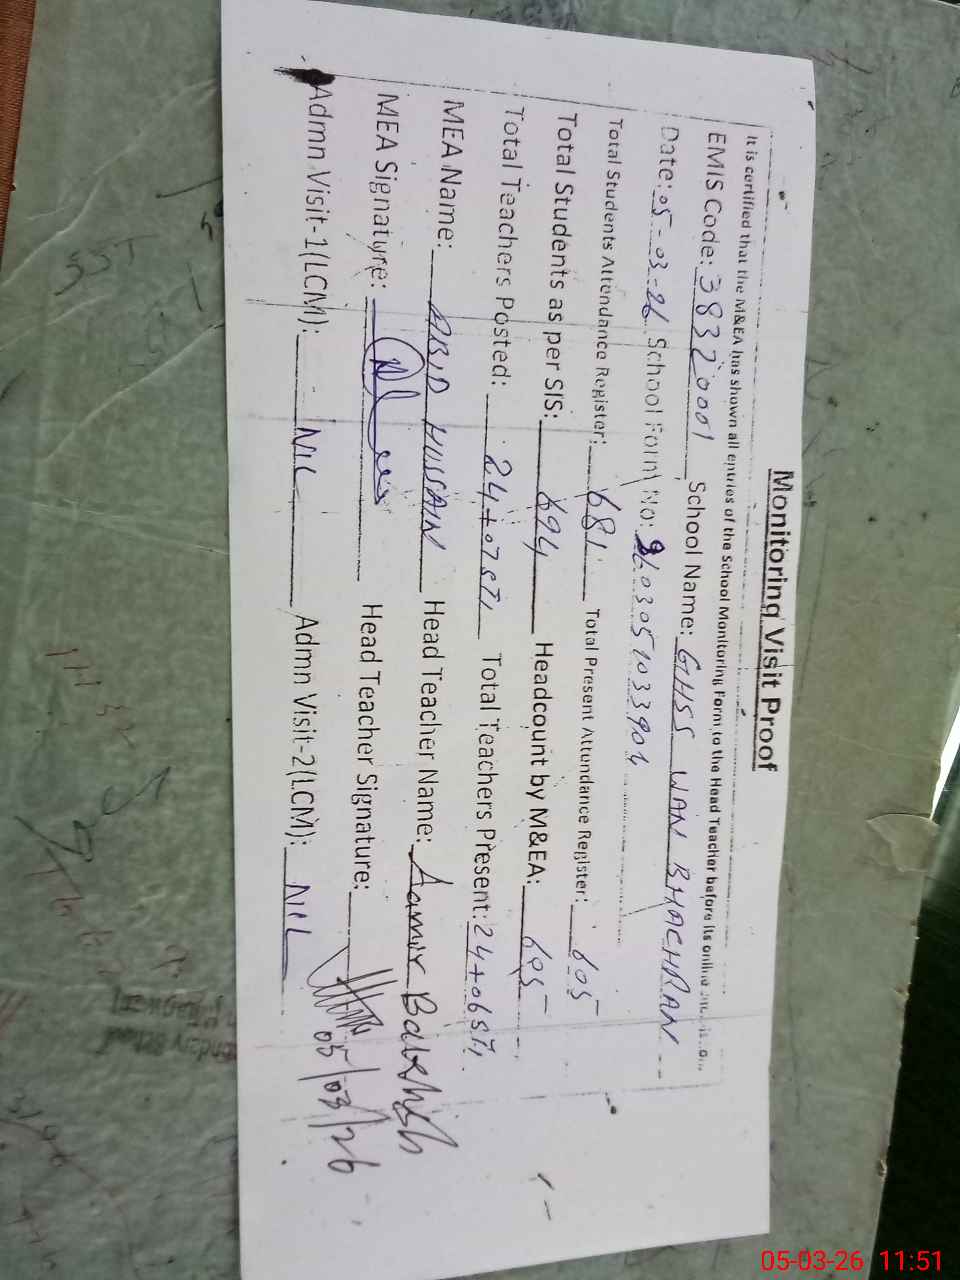 Monitoring Visit Proof
It is certified that the M&EA has shown all entries of the School Monitoring Form to the Head Teacher before its online
EMIS Code: 38320001 School Name: GHSS WAN BHACHRAN
Date: 05-03-26 School Form No: 9603051033901
Total Students Attendance Register: 681 Total Present Attendance Register: 605
Total Students as per SIS: 694 Headcount by M&EA: 605
Total Teachers Posted: 24+07 STI Total Teachers Present: 24+06 STI
MEA Name: ABID HUSSAIN Head Teacher Name: Aamir Bakhsh
MEA Signature: Head Teacher Signature:
05/03/26
Admn Visit-1(LCM): NIL Admn Visit-2(LCM): NIL
05-03-26 11:51